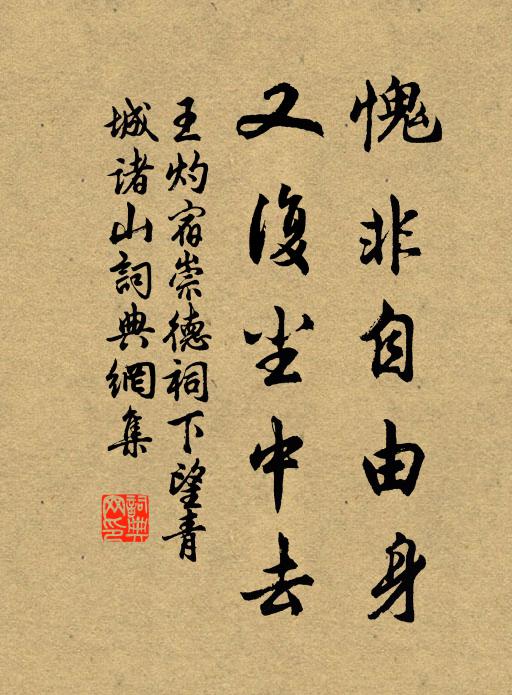 愧非自由身
又復尘中去
王灼宿崇德祠下望青
城诸山詞典網集
詞典網印